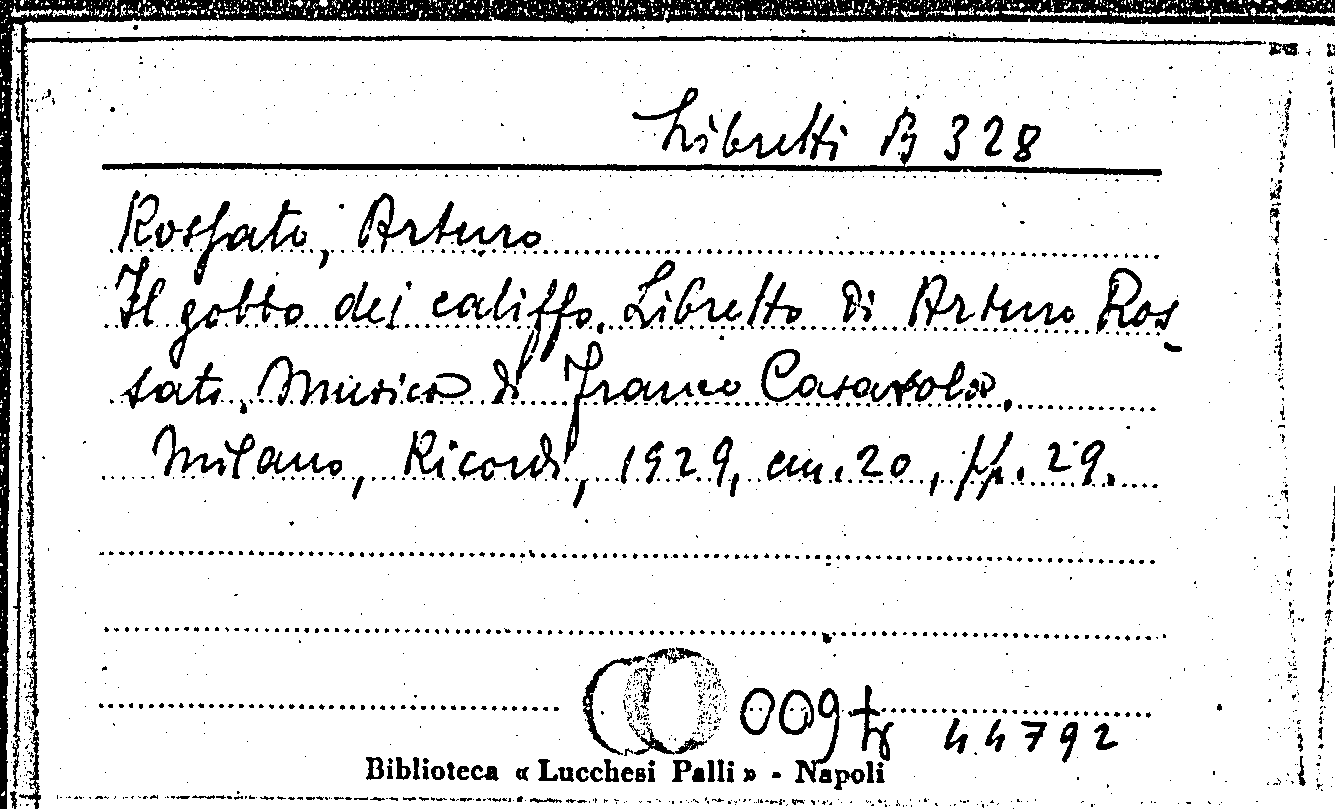 Libretti B 328
Rossato, Arturo
Il gobbo del califfo. Libretto di Arturo Ros-
sato. Musica di Franco Casavola.
Milano, Ricordi, 1929, cm. 20, pp. 29.
009
44792
Biblioteca « Lucchesi Palli » - Napoli